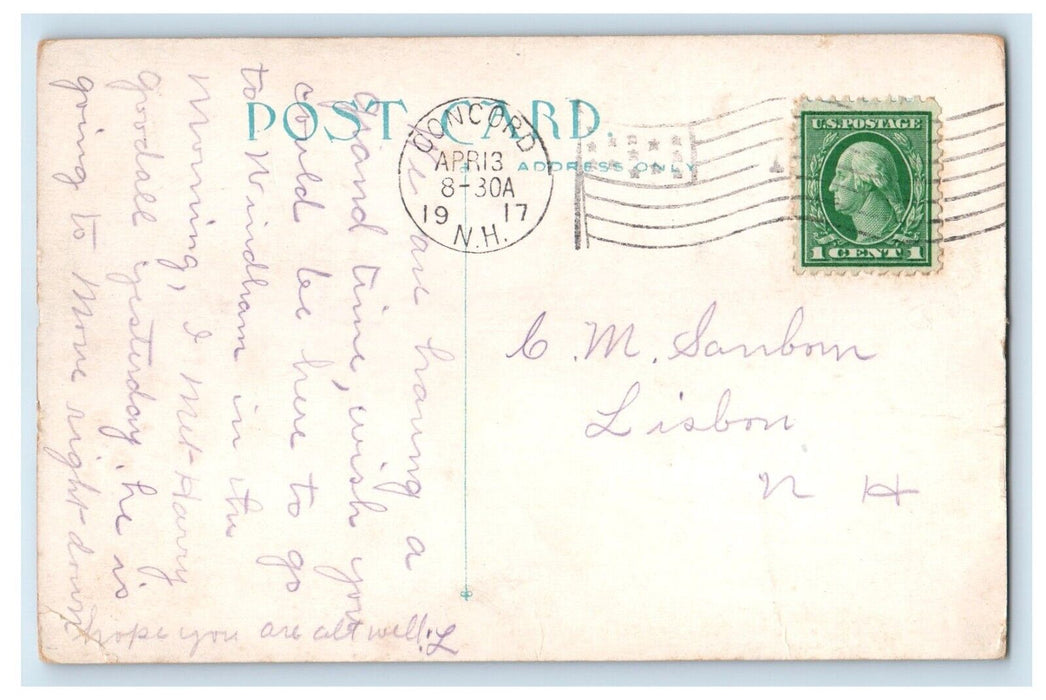 POST CARD.
ADDRESS ONLY
CONCORD
APR 13
8-30A
19 17
N.H.
U.S. POSTAGE
1 CENT 1
C. M. Sanborn
Lisbon
N H
are having a
grand time, wish you
could be here to go
to Windham in the
morning, I met Harry
Goodall yesterday, he is
going to move right down
hope you are all well. L